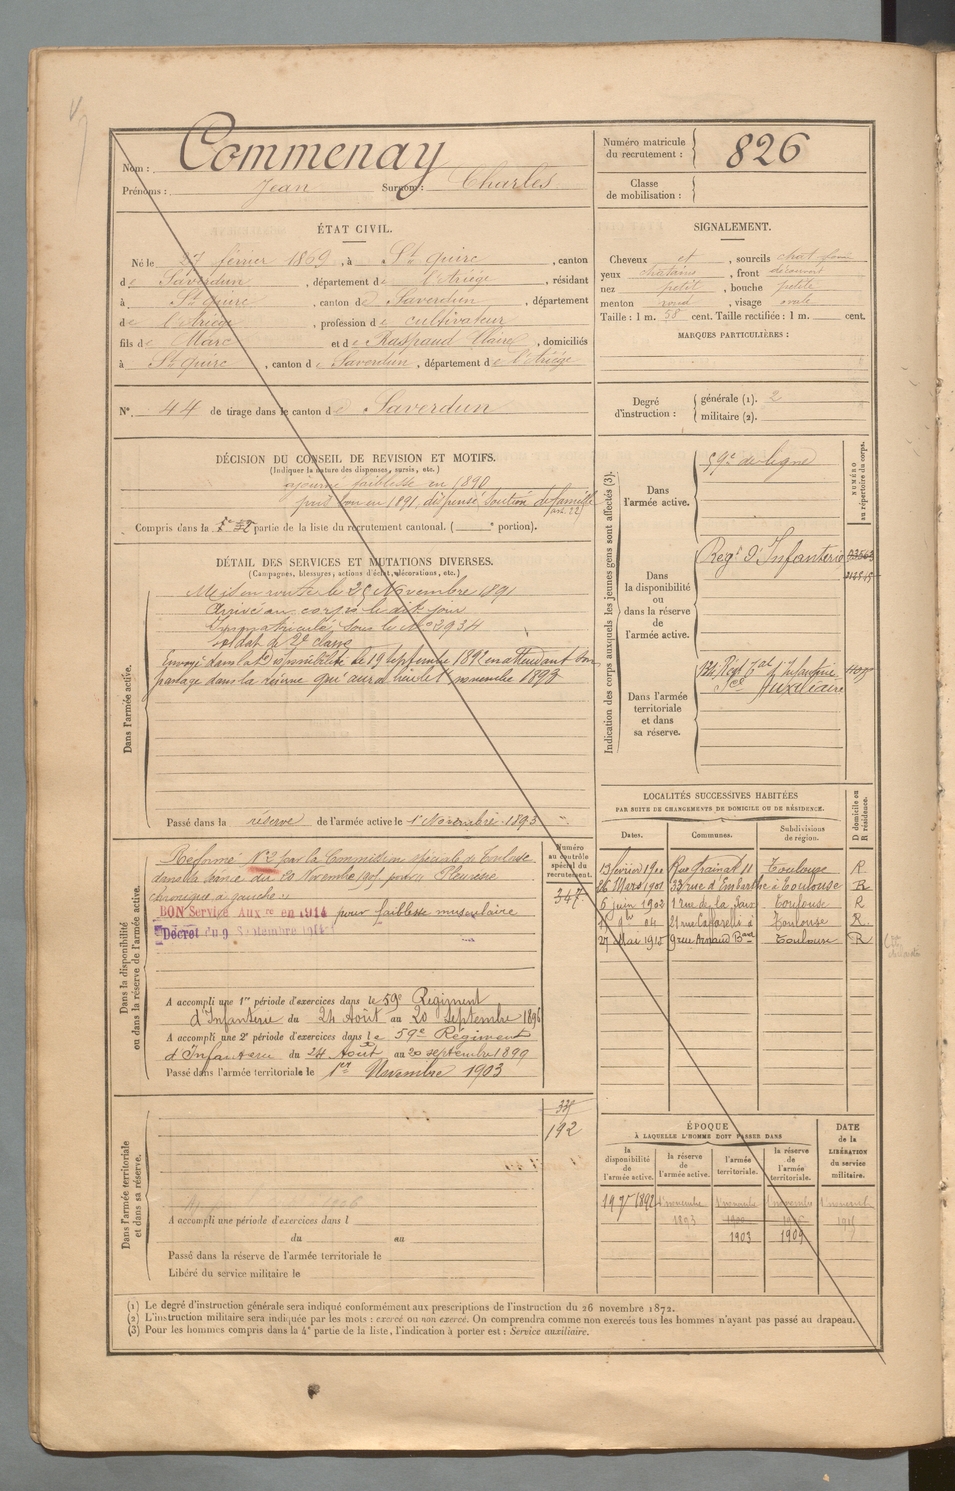 Nom : Commenay
Prénoms : Jean Surnom : Charles
Numéro matricule du recrutement : 826
Classe de mobilisation :
ÉTAT CIVIL.
Né le 27 février 1869, à St Quirc, canton
de Saverdun, département de l'Ariège, résidant
à St Quirc, canton de Saverdun, département
de l'Ariège, profession de cultivateur
fils de Marc et de Raspaud Claire, domiciliés
à St Quirc, canton de Saverdun, département de l'Ariège
SIGNALEMENT.
Cheveux et, sourcils chat.
yeux chatains, front découvert
nez petit, bouche petite
menton rond, visage ovale
Taille : 1 m. 58 cent. Taille rectifiée : 1 m. cent.
MARQUES PARTICULIÈRES :
N° 44 de tirage dans le canton de Saverdun
Degré d'instruction :
générale (1). 2
militaire (2).
DÉCISION DU CONSEIL DE REVISION ET MOTIFS.
(Indiquer la nature des dispenses, sursis, etc.)
ajourné faiblesse en 1890
puis bon en 1891, dispensé, soutien de famille
(art. 22)
Compris dans la partie de la liste du recrutement cantonal. ( e portion).
DÉTAIL DES SERVICES ET MUTATIONS DIVERSES.
(Campagnes, blessures, actions d'éclat, décorations, etc.)
Dans l'armée active.
Mis en route le 25 Novembre 1891
Arrivé au corps le dit jour
Immatriculé sous le No 2934
soldat de 2e classe
Envoyé dans la disponibilité le 19 Septembre 1892 en attendant son
passage dans la réserve qui aura lieu le 1 novembre 1893
Passé dans la réserve de l'armée active le 1r Novembre 1893
Indication des corps auxquels les jeunes gens sont affectés (3).
NUMÉRO au répertoire du corps.
Dans l'armée active.
59e de ligne
Dans la disponibilité ou dans la réserve de l'armée active.
Regt d'Infanterie
Dans l'armée territoriale et dans sa réserve.
Régt Tal d'Infanterie
Auxiliaire
LOCALITÉS SUCCESSIVES HABITÉES
PAR SUITE DE CHANGEMENTS DE DOMICILE OU DE RÉSIDENCE.
D domicile ou R résidence.
Dates. Communes. Subdivisions de région.
13 février 1900 Rue Toulouse R
26 Mars 1901 33 rue d'Embarthe à Toulouse R
6 juin 1902 Toulouse R
04 21 rue Caffarelli à Toulouse R
27 Mai 1915 9 rue Arnaud Toulouse R
Dans la disponibilité ou dans la réserve de l'armée active.
Numéro au contrôle spécial du recrutement.
347
Réformé No 2 par la Commission spéciale de Toulouse
dans la séance du 20 Novembre 1901 pour "Pleurésie
chronique à gauche"
BON Service Auxre en 1914 pour faiblesse musculaire
Décret du 9 Septembre 1914
A accompli une 1re période d'exercices dans le 59e Régiment
d'Infanterie du 24 Août au 20 septembre 1896
A accompli une 2e période d'exercices dans le 59e Régiment
d'Infanterie du 24 Août au 20 septembre 1899
Passé dans l'armée territoriale le 1er Novembre 1903
Dans l'armée territoriale et dans sa réserve.
192
A accompli une période d'exercices dans l
du au
Passé dans la réserve de l'armée territoriale le
Libéré du service militaire le
ÉPOQUE
À LAQUELLE L'HOMME DOIT PASSER DANS
la disponibilité de l'armée active.
la réserve de l'armée active.
l'armée territoriale.
la réserve de l'armée territoriale.
DATE de la LIBÉRATION du service militaire.
1892 1r novembre 1r novembre 1r novembre 1r novembre
1893
1903 1909
(1) Le degré d'instruction générale sera indiqué conformément aux prescriptions de l'instruction du 26 novembre 1872.
(2) L'instruction militaire sera indiquée par les mots : exercé ou non exercé. On comprendra comme non exercés tous les hommes n'ayant pas passé au drapeau.
(3) Pour les hommes compris dans la 4e partie de la liste, l'indication à porter est : Service auxiliaire.